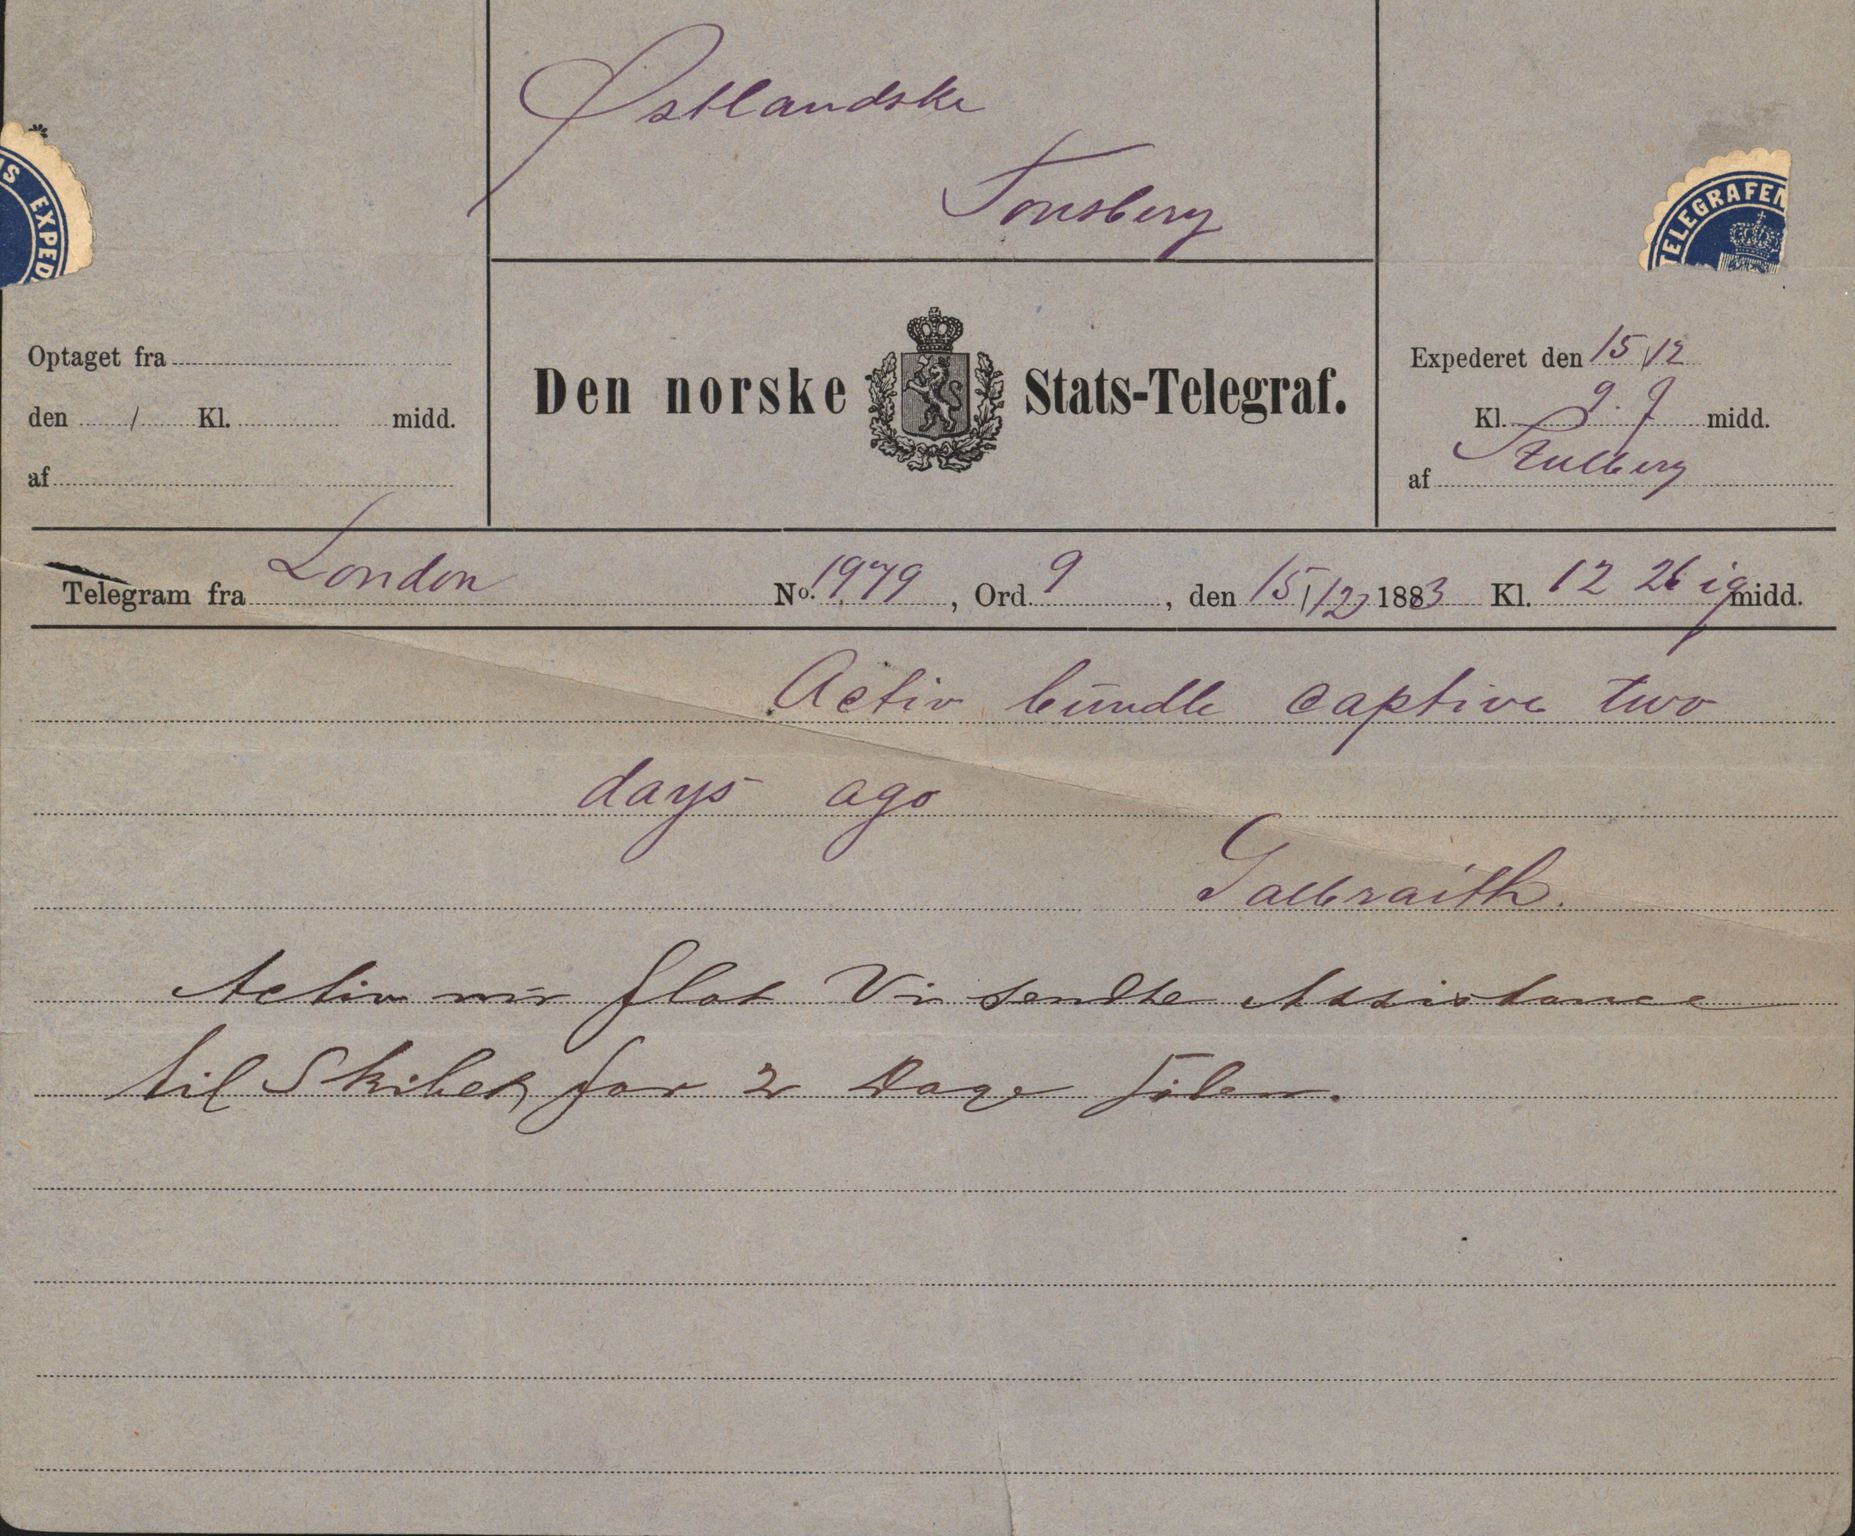 Østlandske
Tonsberg
NS EXPED
TELEGRAFEN
Optaget fra
den / Kl. midd.
af
Den norske Stats-Telegraf.
Expederet den 15/12
Kl. 9. f midd.
af
Telegram fra London No. 1979, Ord 9, den 15/12 1883 Kl. 12 26 midd.
Activ bundle captive two
days ago
Galbraith.
Activ flot Vi sendte Assistance
til Skibet for 2 Dage siden.